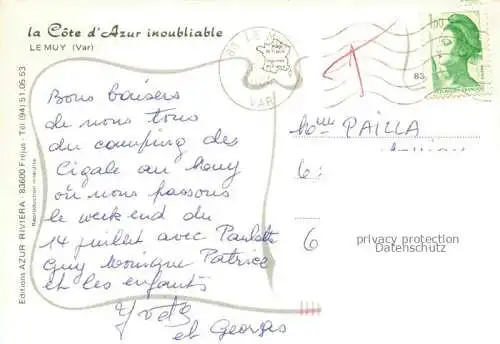 la Côte d'Azur inoubliable
LE MUY (Var)
83 LE MUY
VAR
1,60
83
Bons baisers
de nous tous
du camping des
Cigale au Muy
où nous passons
le week end du
14 juillet avec Paulette
Guy Monique Patrice
et les enfants
Yvette
et Georges
Mme PAILLA
6
6
privacy protection
Datenschutz
Editions AZUR-RIVIERA - 83600 Fréjus - Tél (94) 51.05.53
Reproduction interdite